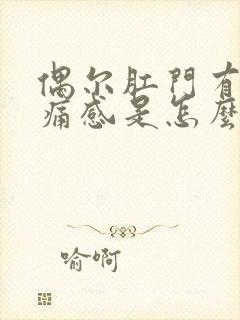 偶尔肛門有
痛感是怎麼
喻啊